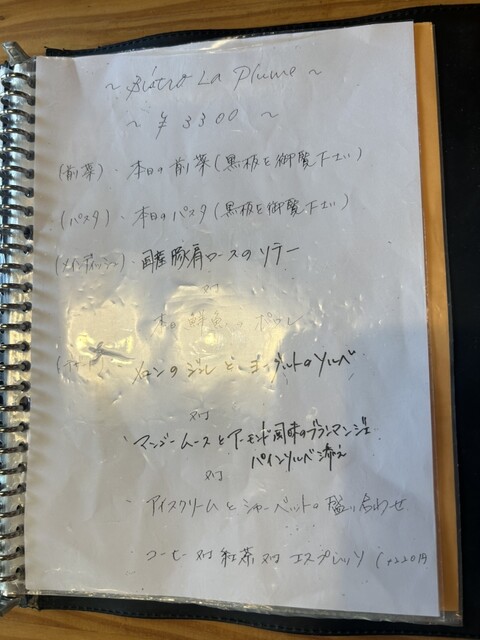 ~ Bistro La Plume ~
~ ¥3300 ~
(前菜)・本日の前菜(黒板を御覧下さい)
(パスタ)・本日のパスタ(黒板を御覧下さい)
(メインディッシュ)・国産豚肩ロースのソテー
又は
本日鮮魚のポワレ
メロンのジュレとヨーグルトのソルベ
又は
マンゴームースとアーモンド風味のブランマンジェ
パインソルベ添え
又は
アイスクリームとシャーベットの盛り合わせ
コーヒー 又は 紅茶 又は エスプレッソ (+220円